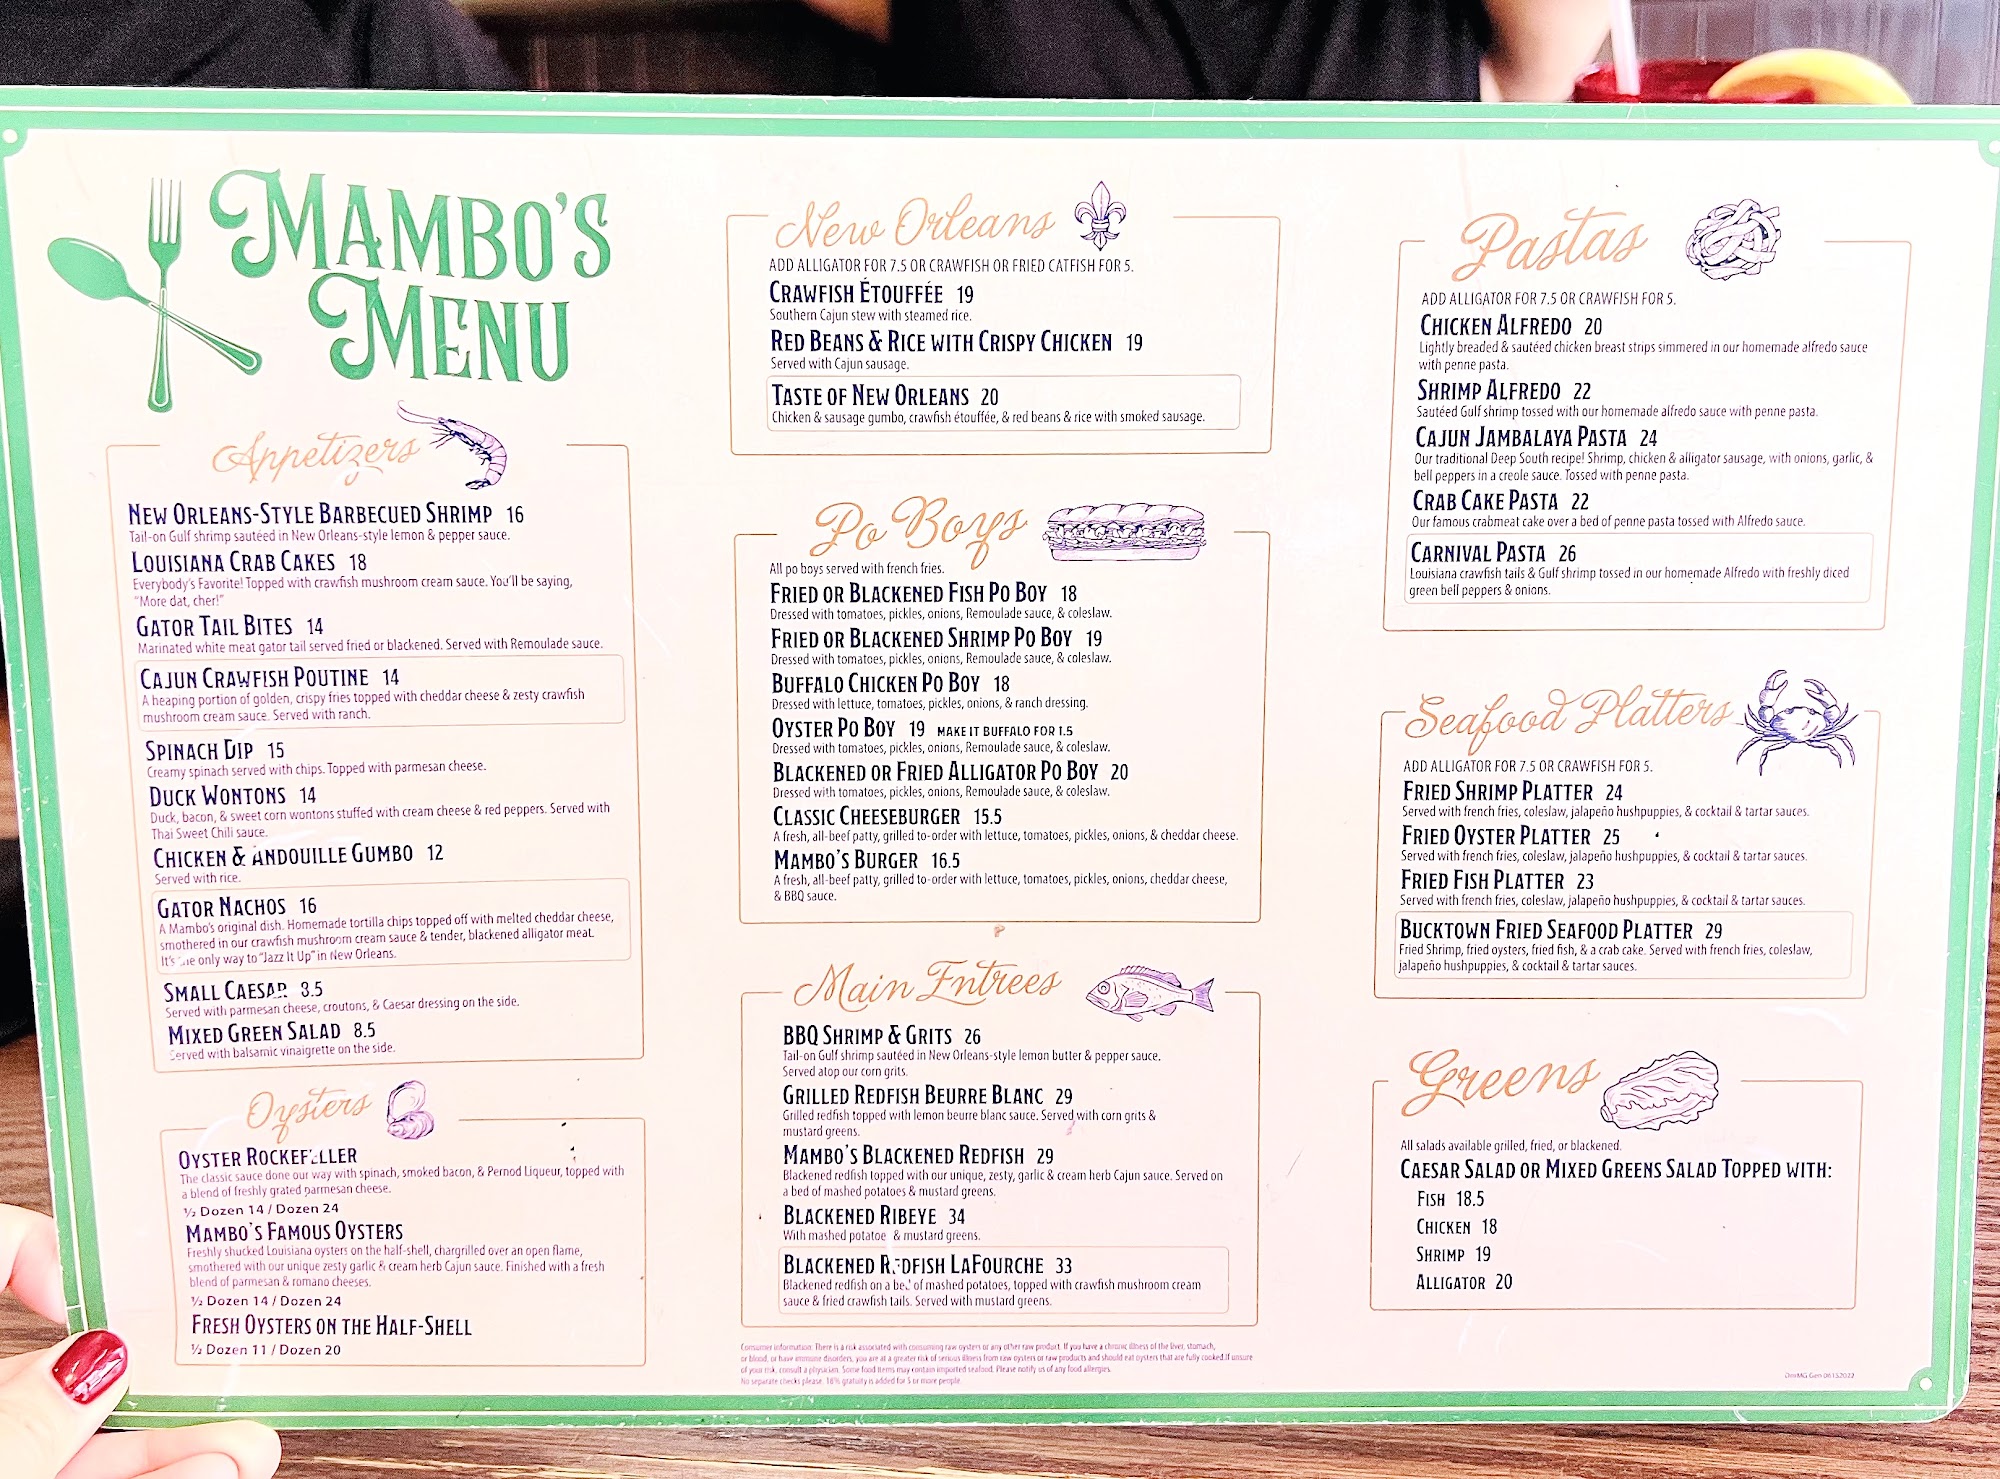 MAMBO'S
MENU
Appetizers
NEW ORLEANS-STYLE BARBECUED SHRIMP 16
Tail-on Gulf shrimp sautéed in New Orleans-style lemon & pepper sauce.
LOUISIANA CRAB CAKES 18
Everybody's Favorite! Topped with crawfish mushroom cream sauce. You'll be saying,
"More dat, cher!"
GATOR TAIL BITES 14
Marinated white meat gator tail served fried or blackened. Served with Remoulade sauce.
CAJUN CRAWFISH POUTINE 14
A heaping portion of golden, crispy fries topped with cheddar cheese & zesty crawfish
mushroom cream sauce. Served with ranch.
SPINACH DIP 15
Creamy spinach served with chips. Topped with parmesan cheese.
DUCK WONTONS 14
Duck, bacon, & sweet corn wontons stuffed with cream cheese & red peppers. Served with
Thai Sweet Chili sauce.
CHICKEN & ANDOUILLE GUMBO 12
Served with rice.
GATOR NACHOS 16
A Mambo's original dish. Homemade tortilla chips topped off with melted cheddar cheese,
smothered in our crawfish mushroom cream sauce & tender, blackened alligator meat.
It's the only way to "Jazz It Up" in New Orleans.
SMALL CAESAR 8.5
Served with parmesan cheese, croutons, & Caesar dressing on the side.
MIXED GREEN SALAD 8.5
Served with balsamic vinaigrette on the side.
Oysters
OYSTER ROCKEFELLER
The classic sauce done our way with spinach, smoked bacon, & Pernod Liqueur, topped with
a blend of freshly grated parmesan cheese.
½ Dozen 14 / Dozen 24
MAMBO'S FAMOUS OYSTERS
Freshly shucked Louisiana oysters on the half-shell, chargrilled over an open flame,
smothered with our unique zesty garlic & cream herb Cajun sauce. Finished with a fresh
blend of parmesan & romano cheeses.
½ Dozen 14 / Dozen 24
FRESH OYSTERS ON THE HALF-SHELL
½ Dozen 11 / Dozen 20
New Orleans
ADD ALLIGATOR FOR 7.5 OR CRAWFISH OR FRIED CATFISH FOR 5.
CRAWFISH ÉTOUFFÉE 19
Southern Cajun stew with steamed rice.
RED BEANS & RICE WITH CRISPY CHICKEN 19
Served with Cajun sausage.
TASTE OF NEW ORLEANS 20
Chicken & sausage gumbo, crawfish étouffée, & red beans & rice with smoked sausage.
Po Boys
All po boys served with french fries.
FRIED OR BLACKENED FISH PO BOY 18
Dressed with tomatoes, pickles, onions, Remoulade sauce, & coleslaw.
FRIED OR BLACKENED SHRIMP PO BOY 19
Dressed with tomatoes, pickles, onions, Remoulade sauce, & coleslaw.
BUFFALO CHICKEN PO BOY 18
Dressed with lettuce, tomatoes, pickles, onions, & ranch dressing.
OYSTER PO BOY 19 MAKE IT BUFFALO FOR 1.5
Dressed with tomatoes, pickles, onions, Remoulade sauce, & coleslaw.
BLACKENED OR FRIED ALLIGATOR PO BOY 20
Dressed with tomatoes, pickles, onions, Remoulade sauce, & coleslaw.
CLASSIC CHEESEBURGER 15.5
A fresh, all-beef patty, grilled to-order with lettuce, tomatoes, pickles, onions, & cheddar cheese.
MAMBO'S BURGER 16.5
A fresh, all-beef patty, grilled to-order with lettuce, tomatoes, pickles, onions, cheddar cheese,
& BBQ sauce.
Main Entrees
BBQ SHRIMP & GRITS 26
Tail-on Gulf shrimp sautéed in New Orleans-style lemon butter & pepper sauce.
Served atop our corn grits.
GRILLED REDFISH BEURRE BLANC 29
Grilled redfish topped with lemon beurre blanc sauce. Served with corn grits &
mustard greens.
MAMBO'S BLACKENED REDFISH 29
Blackened redfish topped with our unique, zesty, garlic & cream herb Cajun sauce. Served on
a bed of mashed potatoes & mustard greens.
BLACKENED RIBEYE 34
With mashed potatoe & mustard greens.
BLACKENED REDFISH LAFOURCHE 33
Blackened redfish on a bed of mashed potatoes, topped with crawfish mushroom cream
sauce & fried crawfish tails. Served with mustard greens.
Consumer information: There is a risk associated with consuming raw oysters or any other raw product. If you have a chronic illness of the liver, stomach,
or blood, or have immune disorders, you are at a greater risk of serious illness from raw oysters or raw products and should eat oysters that are fully cooked. If unsure
of your risk, consult a physician. Some food items may contain imported seafood. Please notify us of any food allergies.
No separate checks please. 18% gratuity is added for 5 or more people.
Pastas
ADD ALLIGATOR FOR 7.5 OR CRAWFISH FOR 5.
CHICKEN ALFREDO 20
Lightly breaded & sautéed chicken breast strips simmered in our homemade alfredo sauce
with penne pasta.
SHRIMP ALFREDO 22
Sautéed Gulf shrimp tossed with our homemade alfredo sauce with penne pasta.
CAJUN JAMBALAYA PASTA 24
Our traditional Deep South recipe! Shrimp, chicken & alligator sausage, with onions, garlic, &
bell peppers in a creole sauce. Tossed with penne pasta.
CRAB CAKE PASTA 22
Our famous crabmeat cake over a bed of penne pasta tossed with Alfredo sauce.
CARNIVAL PASTA 26
Louisiana crawfish tails & Gulf shrimp tossed in our homemade Alfredo with freshly diced
green bell peppers & onions.
Seafood Platters
ADD ALLIGATOR FOR 7.5 OR CRAWFISH FOR 5.
FRIED SHRIMP PLATTER 24
Served with french fries, coleslaw, jalapeño hushpuppies, & cocktail & tartar sauces.
FRIED OYSTER PLATTER 25
Served with french fries, coleslaw, jalapeño hushpuppies, & cocktail & tartar sauces.
FRIED FISH PLATTER 23
Served with french fries, coleslaw, jalapeño hushpuppies, & cocktail & tartar sauces.
BUCKTOWN FRIED SEAFOOD PLATTER 29
Fried Shrimp, fried oysters, fried fish, & a crab cake. Served with french fries, coleslaw,
jalapeño hushpuppies, & cocktail & tartar sauces.
Greens
All salads available grilled, fried, or blackened.
CAESAR SALAD OR MIXED GREENS SALAD TOPPED WITH:
FISH 18.5
CHICKEN 18
SHRIMP 19
ALLIGATOR 20